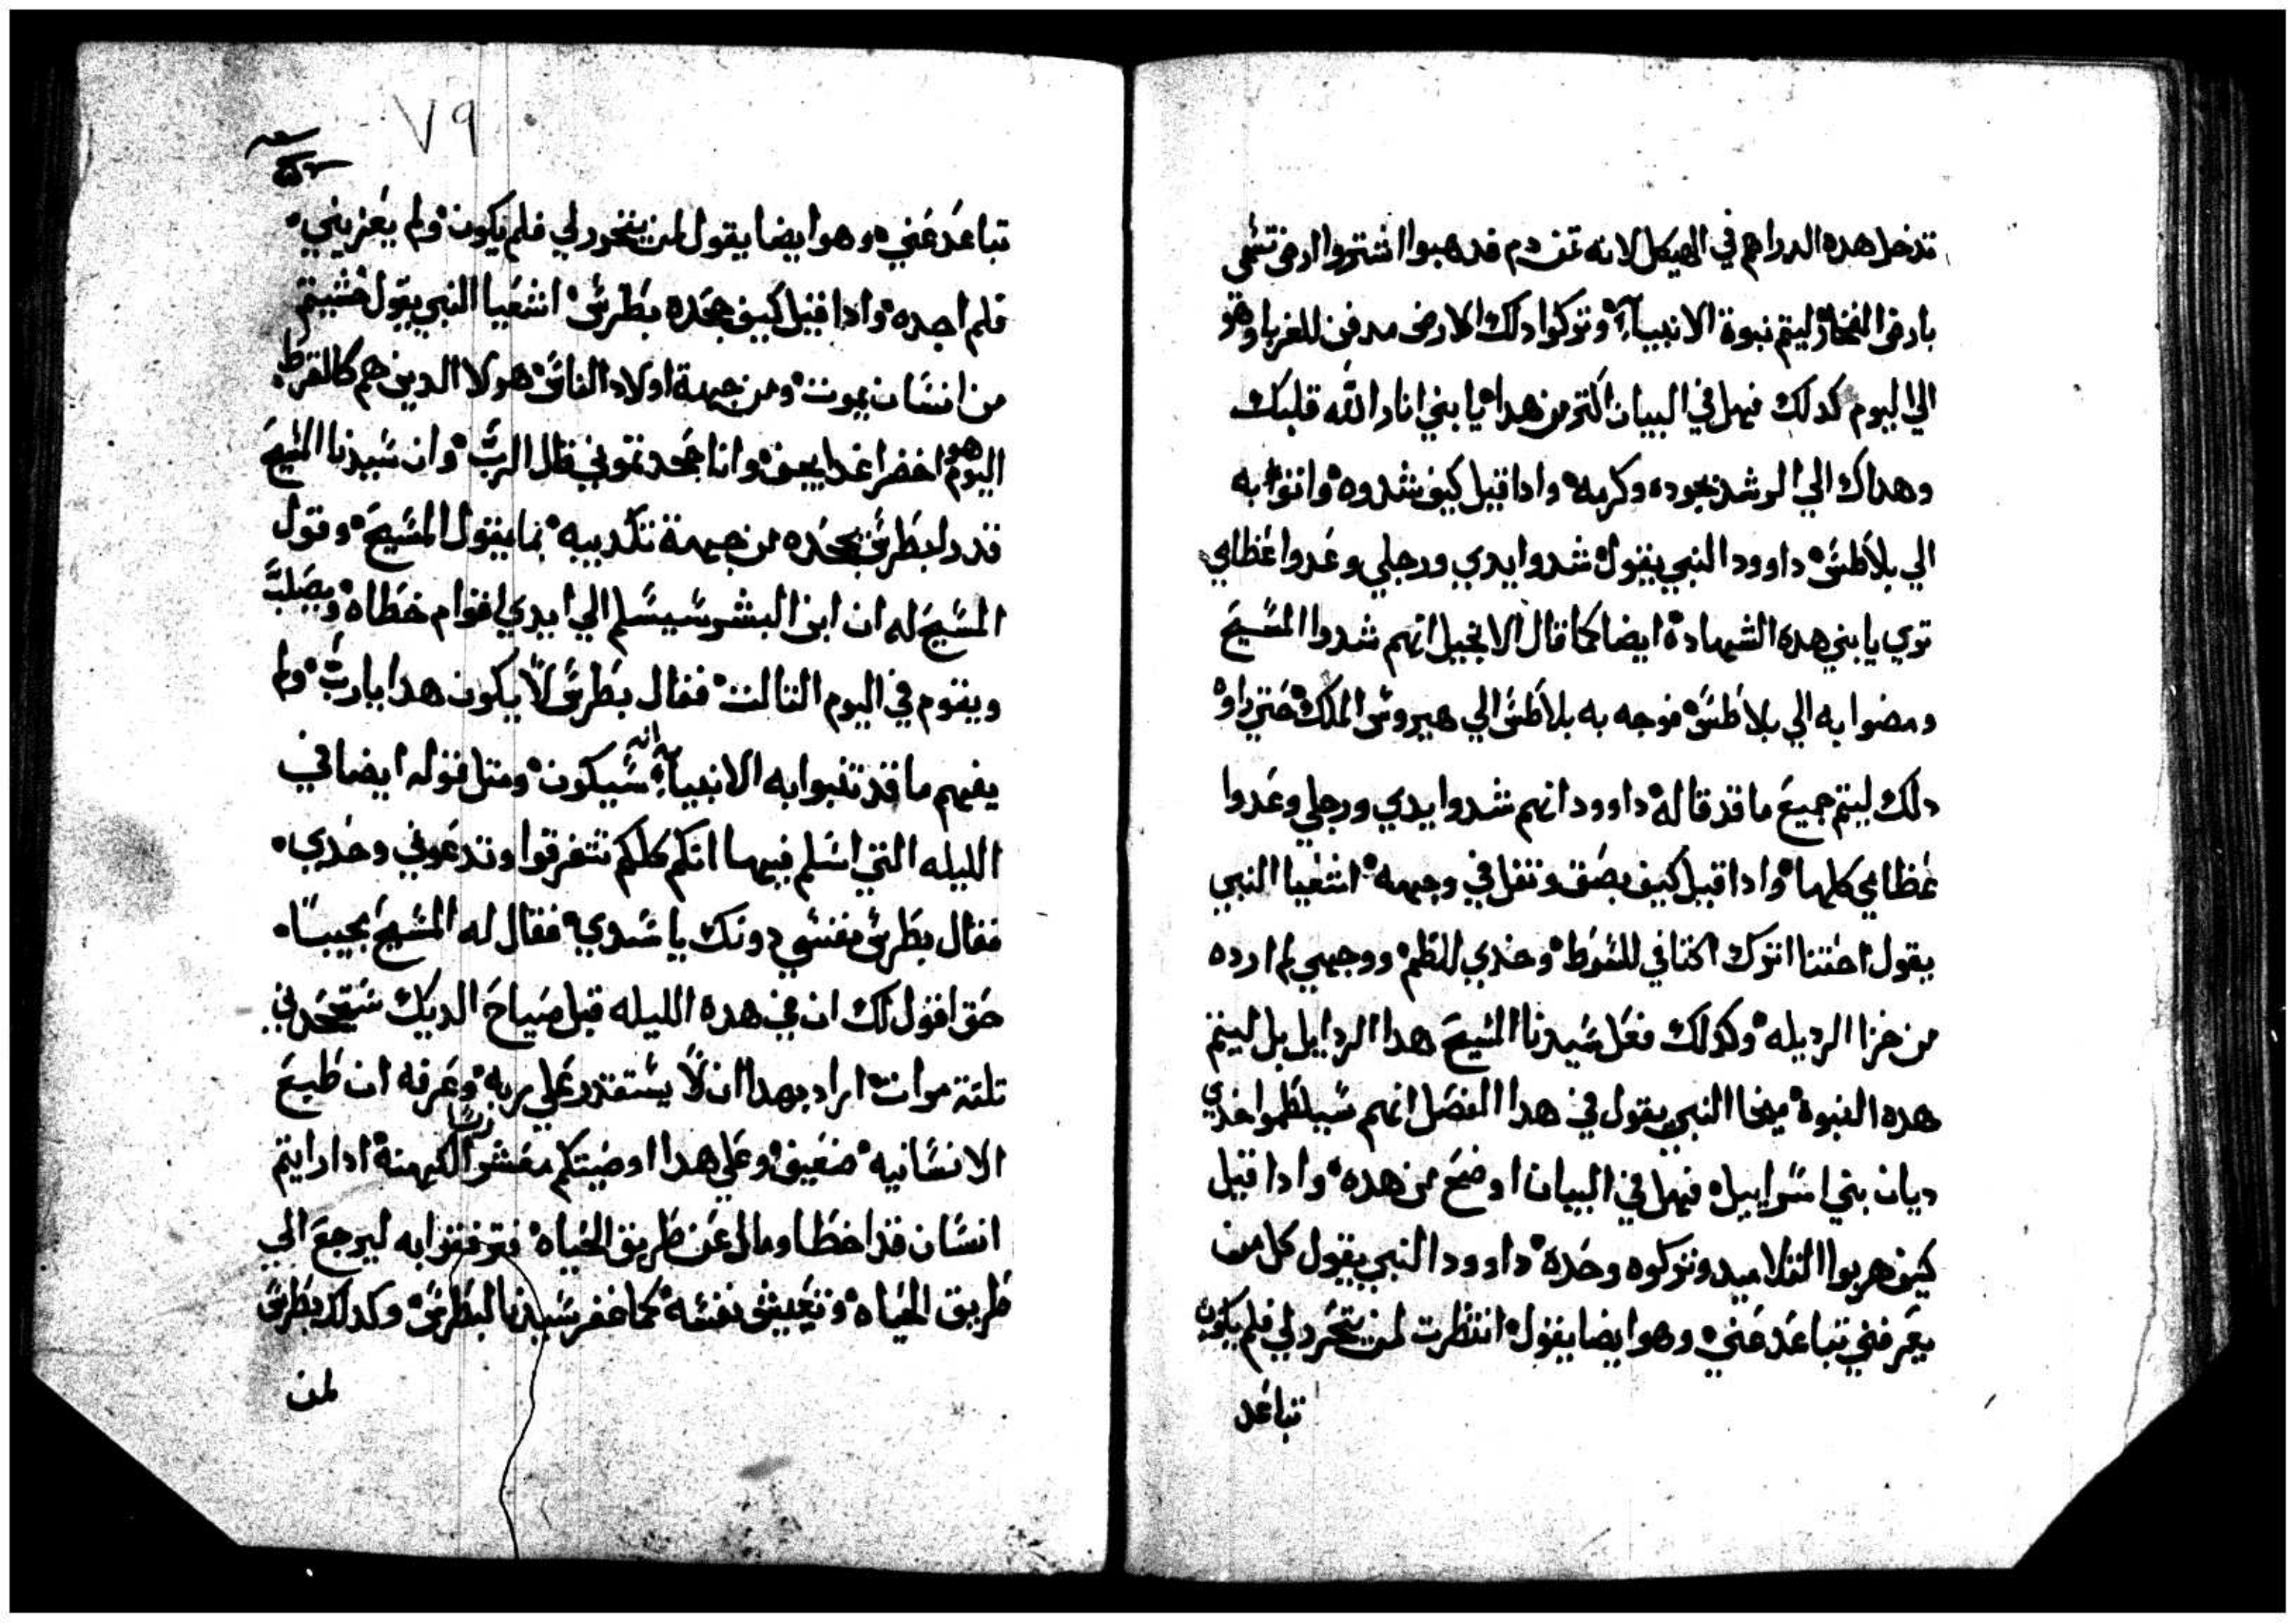 تدخل هده الدراهم في الهيكل لانه تمن دم فدهبوا اشتروا ارض تسمي
بارض الفخار ليتم نبوة الانبيآء وتركوا دلك الارض مدفن للغربا وهو
الي اليوم كدلك فهل في البيان اكتر من هدا يا بني انار الله قلبك
وهداك الي الرشد بجوده وكرمه وادا قيل كيف شدوه واتوا به
الي بلاطس داوود النبي يقول شدوا يدي ورجلي وعدوا عظامي
تري يا بني هده الشهادة ايضا كما قال الانجيل انهم شدوا المسيح
ومضوا به الي بلاطس فوجه به بلاطس الي هيرودس الملك حتي راوْ
دلك ليتم جميع ما قد قاله داوود انهم شدوا يدي ورجلي وعدوا
عظامي كلها وادا قيل كيف بصق وتفل في وجهه اشعيا النبي
يقول اتوك اكتافي للسوط وخدي للطم ووجهي لم ارده
من خزا الرديله وكدلك فعل سيدنا المسيح هدا الردايل بل ليتم
هده النبوة ميخا النبي يقول في هدا الفصل انهم سيلطموا خدي
ديان بني اسراييل فهل في البيان اوضح من هده وادا قيل
كيف هربوا التلاميد وتركوه وحده داوود النبي يقول كل من
يعرفني تباعد عني وهو ايضا يقول انتظرت لمن يتحرد لي فلم يكون
تباعد
٧٩
تباعد عني وهو ايضا يقول لمن يتحرد لي فلم يكون ولم يعزيني
فلم اجده وادا قيل كيف جحده بطرس اشعيا النبي يقول خشيتم
من انسان يموت ومن جهة اولاد الناس هولا الدين هم كالقرط
اليوم هو اخضر اغدا ييبس وانا جحدتموني قال الرب وان سيدنا المسيح
قدر لبطرس بجحده من جهة تكديبه بما يقول المسيح وقول
المسيح له ان ابن البشر سيسلم الي ايدي اقوام خطاه ويصلب
ويقوم في اليوم التالت فقال بطرس لا يكون هدا يارب ولم
يفهم ما قد تنبوا به الانبيآء انه سيكون ومتل قوله ايضا في
الليله التي اسلم فيها انكم كلكم تتفرقوا وتدعوني وحدي
فقال بطرس نفسي دونك يا سيدي فقال له المسيح مجيبا
حق اقول لك ان في هده الليله قبل صياح الديك ستجحدني
تلتة مرات اراد بهدا ان لا يستقدر علي ربه وعرفه ان طبع
الانسانيه ضعيف وعلي هدا اوصيتكم معشر الكهنة ادا رايتم
انسان قد اخطا ومال عن طريق الحياه فترفقوا به ليرجع الي
طريق الحياه وتعيش نفسه كما غفر سيدنا لبطرس وكدلك بطرس
لمن